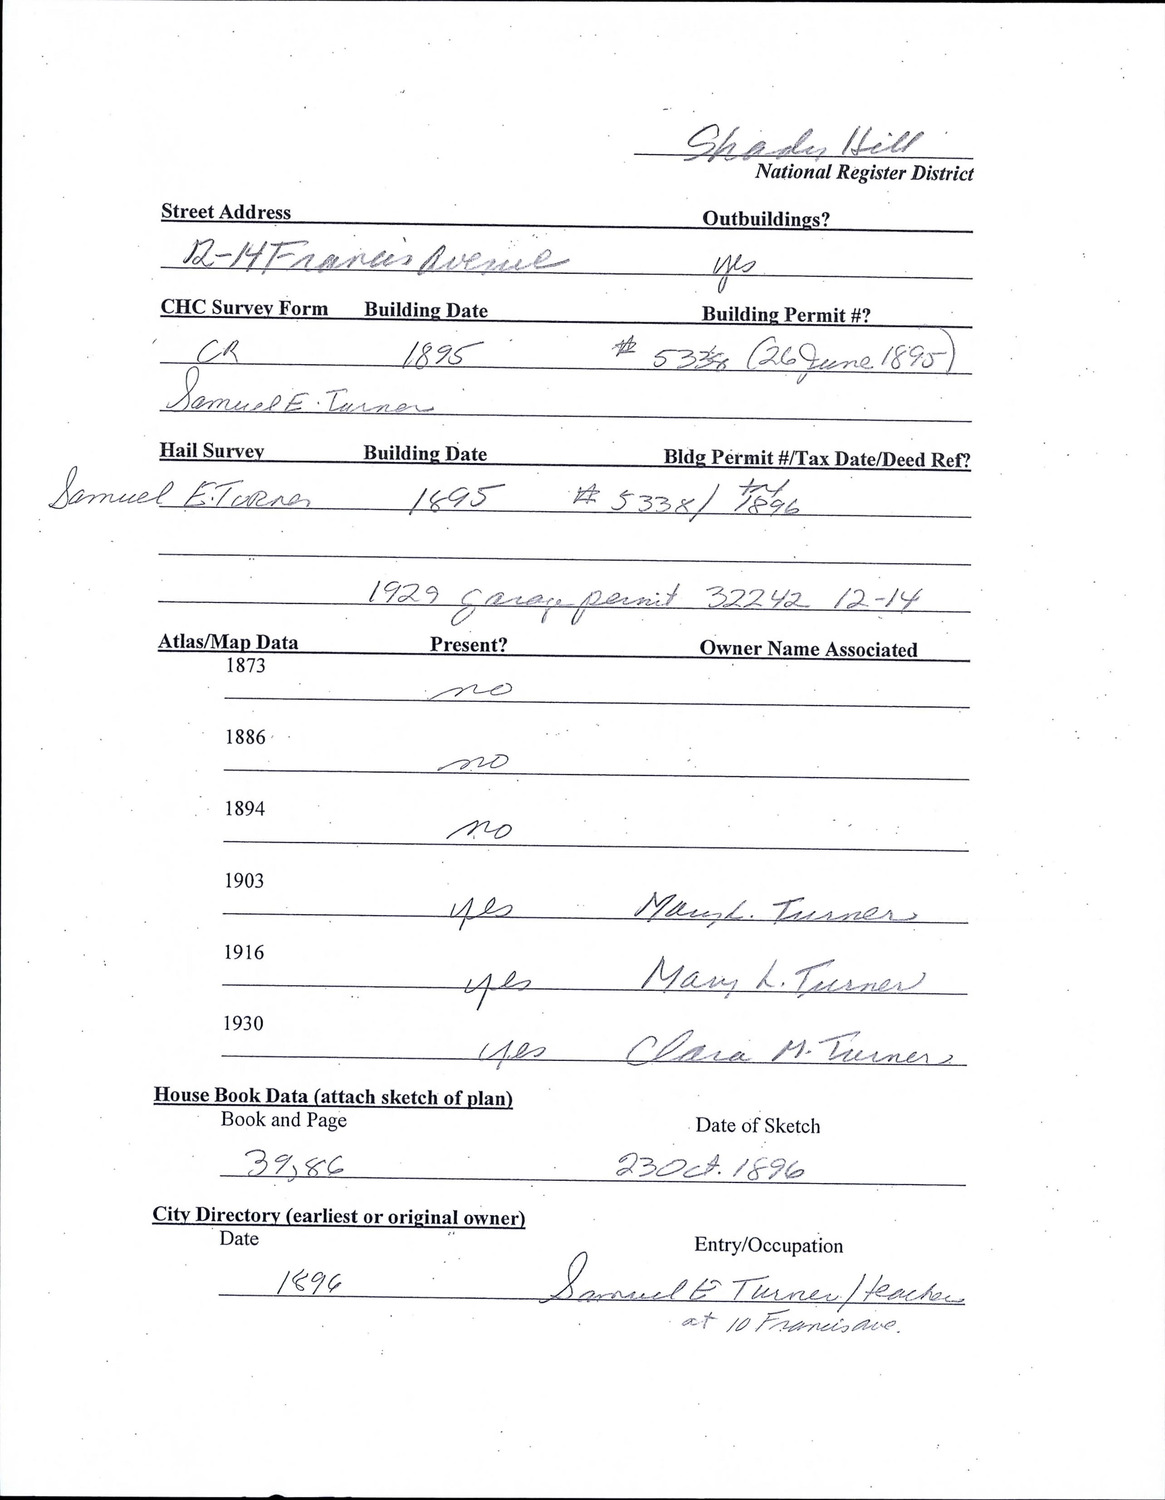 Shady Hill
National Register District
Street Address Outbuildings?
12-14 Francis Avenue yes
CHC Survey Form Building Date Building Permit #?
CR 1895 # 5338 (26 June 1895)
Samuel E. Turner
Hail Survey Building Date Bldg Permit #/Tax Date/Deed Ref?
Samuel E. Turner 1895 # 5338/ 1896
1929 garage permit 32242 12-14
Atlas/Map Data Present? Owner Name Associated
1873
no
1886
no
1894
no
1903
yes Mary L. Turner
1916
yes Mary L. Turner
1930
yes Clara M. Turner
House Book Data (attach sketch of plan)
Book and Page Date of Sketch
39,86 23 Oct. 1896
City Directory (earliest or original owner)
Date Entry/Occupation
1896 Samuel E Turner/teacher
at 10 Francis ave.